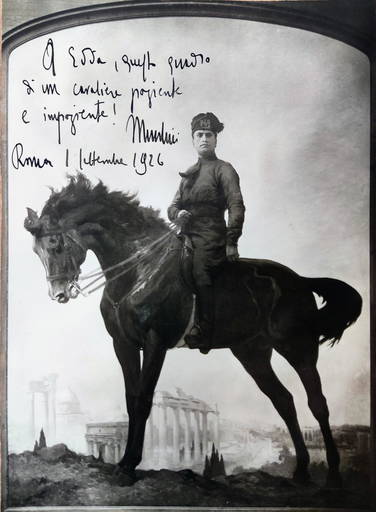 A Edda, questo quadro
di un cavaliere paziente
e impaziente!
Mussolini
Roma 1 settembre 1926